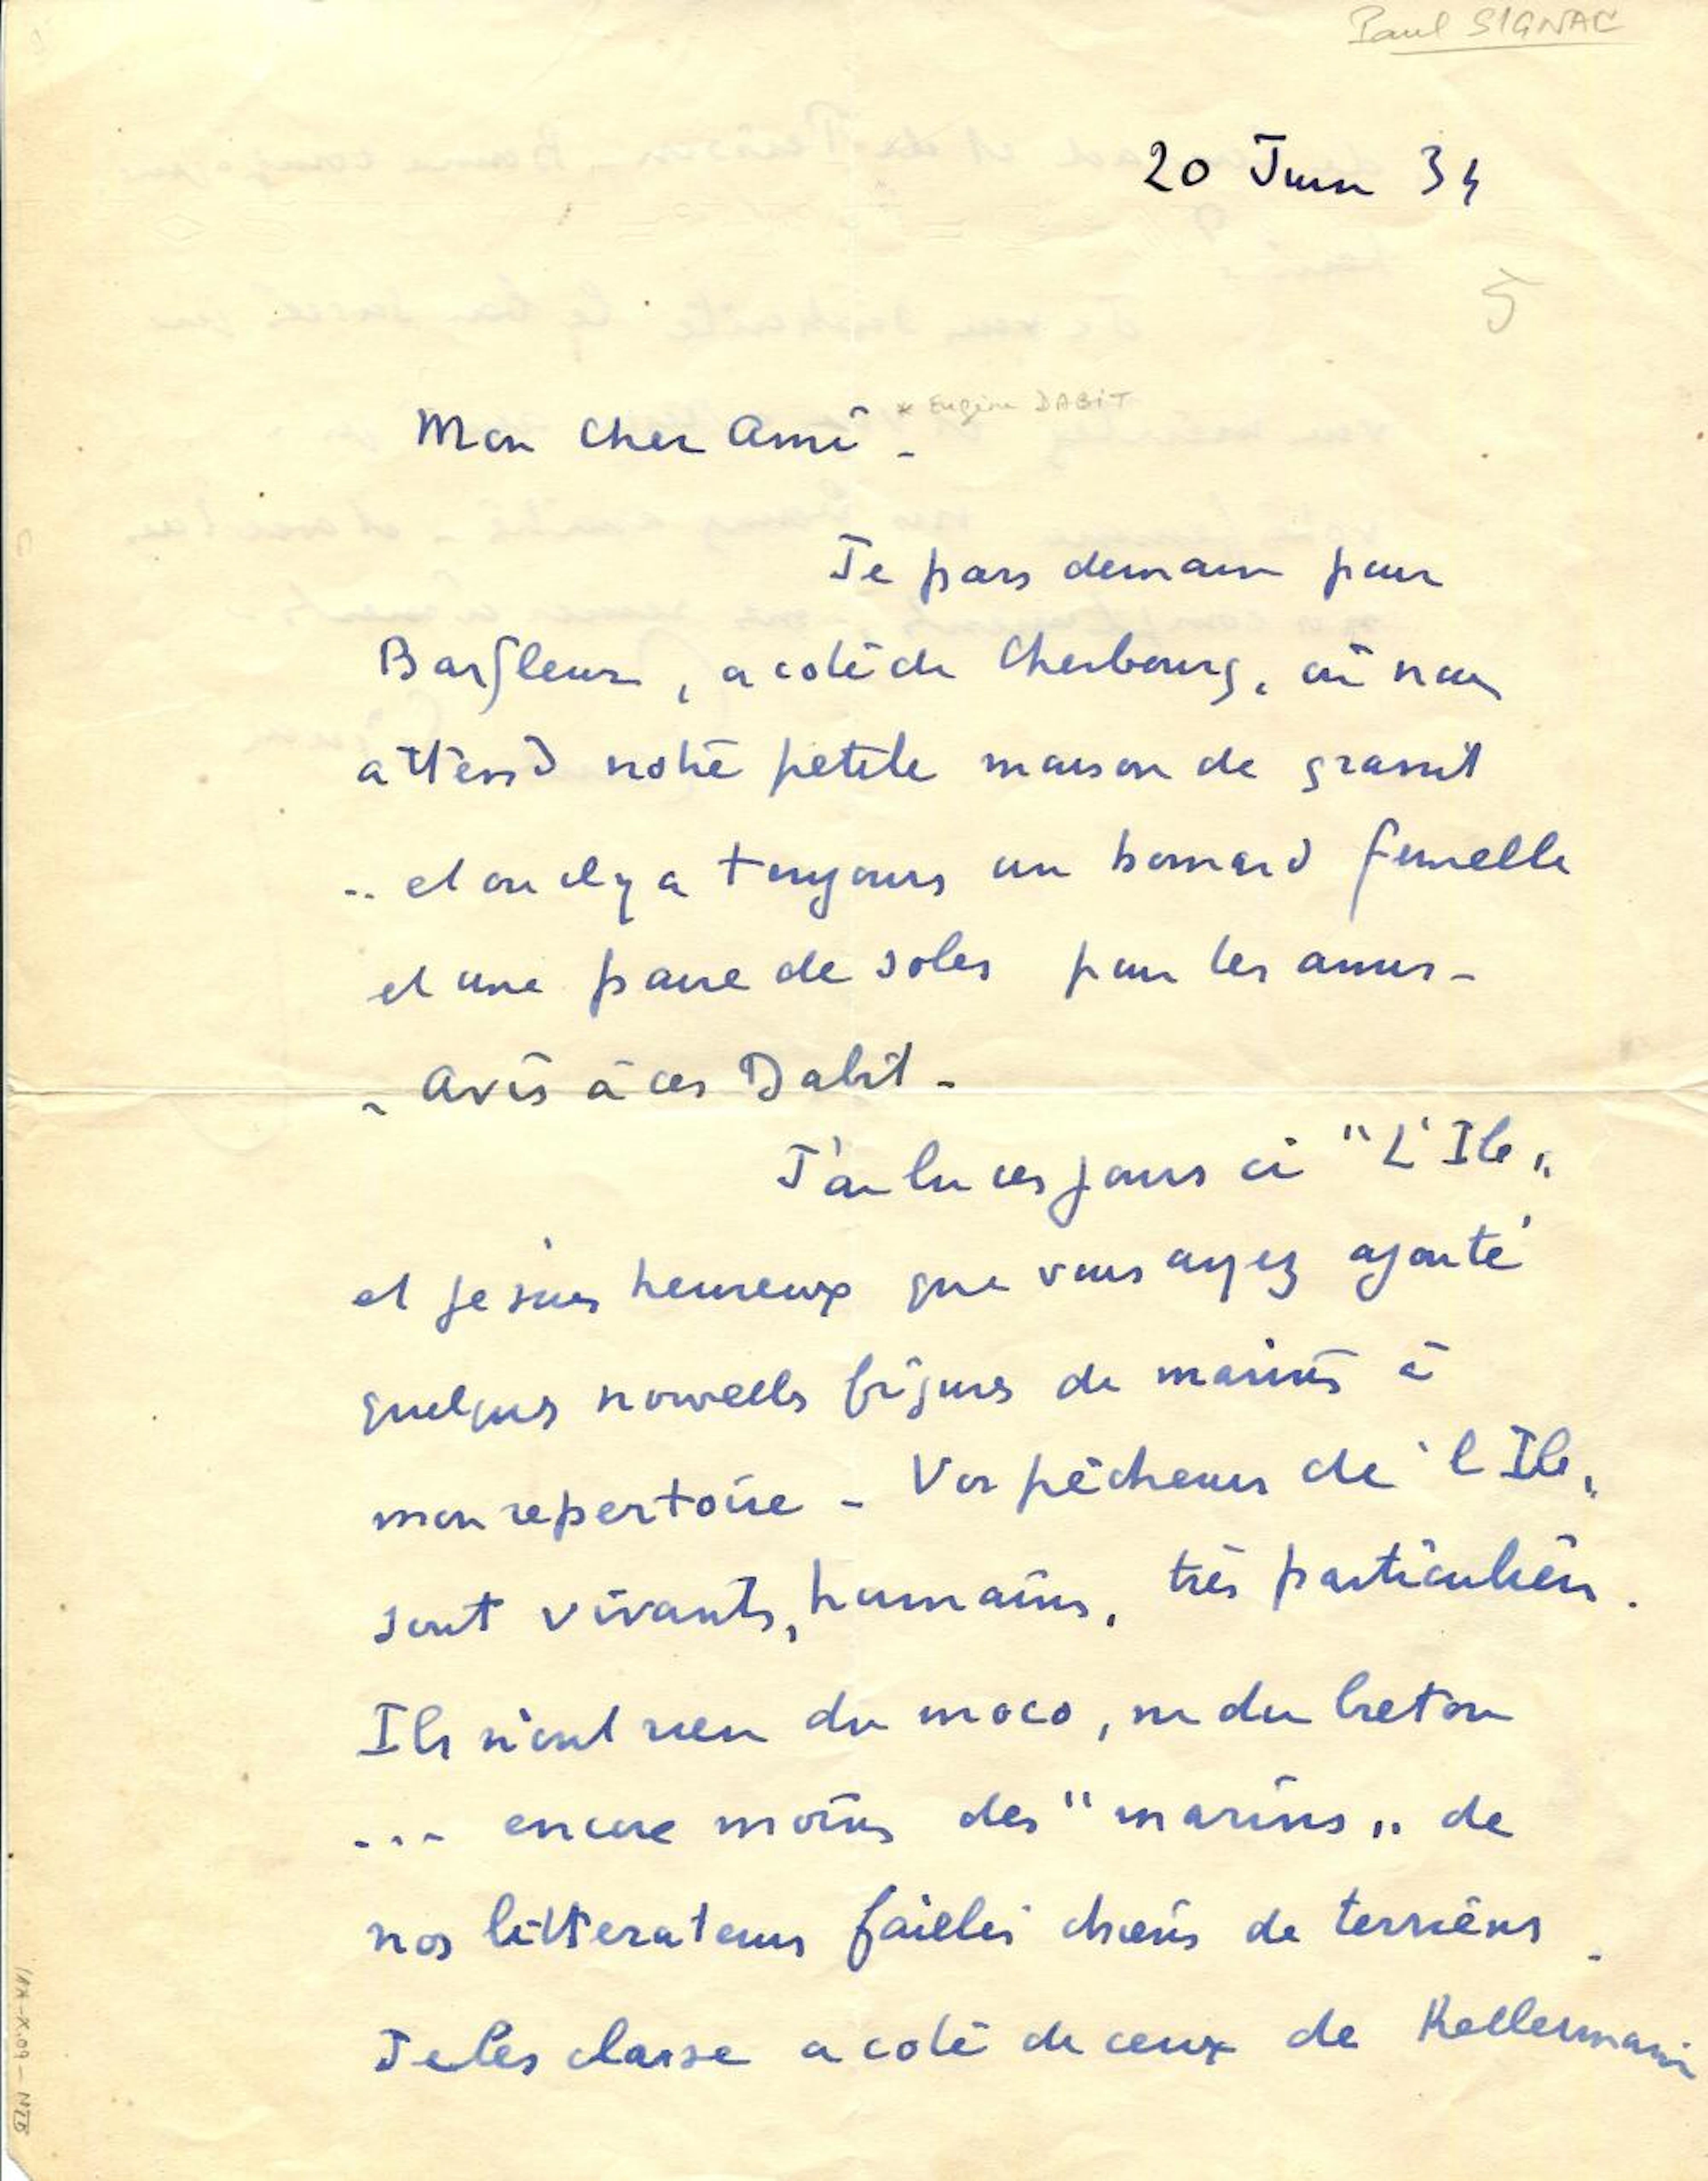 Paul SIGNAC
20 Juin 34
5
Mon cher Ami - * Eugène DABIT
Je pars demain pour
Barfleur, a coté de Cherbourg, où nous
attend notre petite maison de granit
.. et ou il y a toujours un homard femelle
et une paire de soles pour les amis -
- Avis à ces Dabit -
J'ai lu ces jours ci "L'Ile"
et je suis heureux que vous ayez ajouté
quelques nouvelles figures de marins à
mon repertoire - Vos pêcheurs de "l'Ile"
sont vivants, humains, très particuliers.
Ils n'ont rien du moco, ni du breton
... encore moins des "marins" de
nos litterateurs faillis de terriens.
Je les classe a coté de ceux de Kellermann